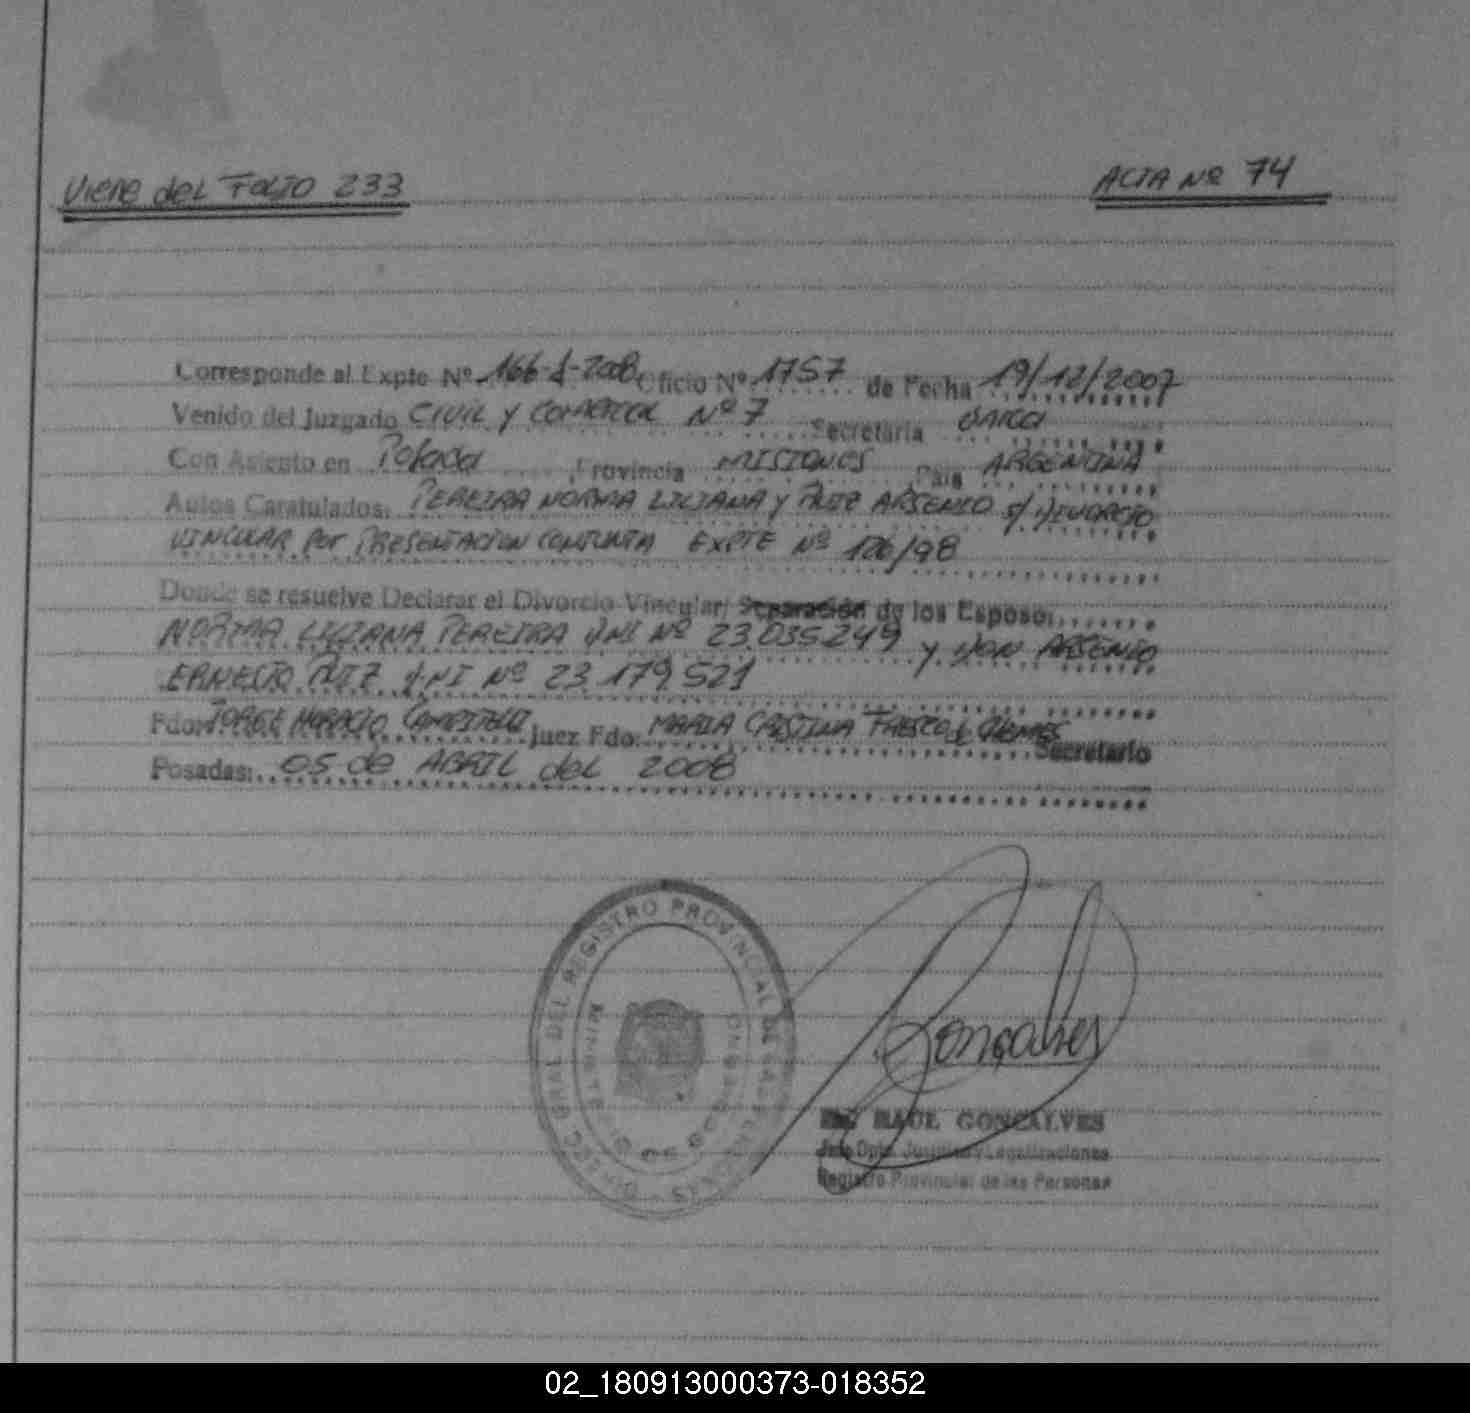 Viene del Folio 233
ACTA Nº 74
Corresponde al Expte Nº 166-J-2008 Oficio Nº 1757 de Fecha 19/12/2007
Venido del Juzgado CIVIL y COMERCIAL Nº 7 Secretaria ÚNICA
Con Asiento en Posadas Provincia MISIONES País ARGENTINA
Autos Caratulados: PEREIRA NORMA LILIANA y RUIZ ARSENIO s/ DIVORCIO
VINCULAR Por PRESENTACION CONJUNTA EXPTE Nº 126/98
Donde se resuelve Declarar el Divorcio Vincular/ Separación de los Esposos
NORMA LILIANA PEREIRA DNI Nº 23.035249 y DON ARSENIO
ERNESTO RUIZ D.NI Nº 23.179.521
Fdo: JORGE HORACIO Juez Fdo: MARIA CRISTINA Secretario
Posadas: 05 de ABRIL del 2008
DIREC. GRAL. DEL REGISTRO PROVINCIAL DE LAS PERSONAS
Gonçalves
RAUL GONCALVES
Jefe Dpto. Justicia y Legalizaciones
Registro Provincial de las Personas
02_180913000373-018352